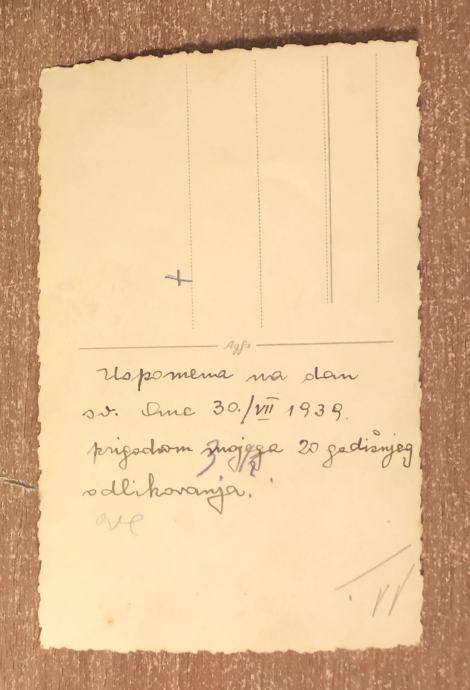 Agfa
Uspomena na dan
sv. Ane 30./VII 1939.
prigodom mojega 20 godišnjeg
odlikovanja.